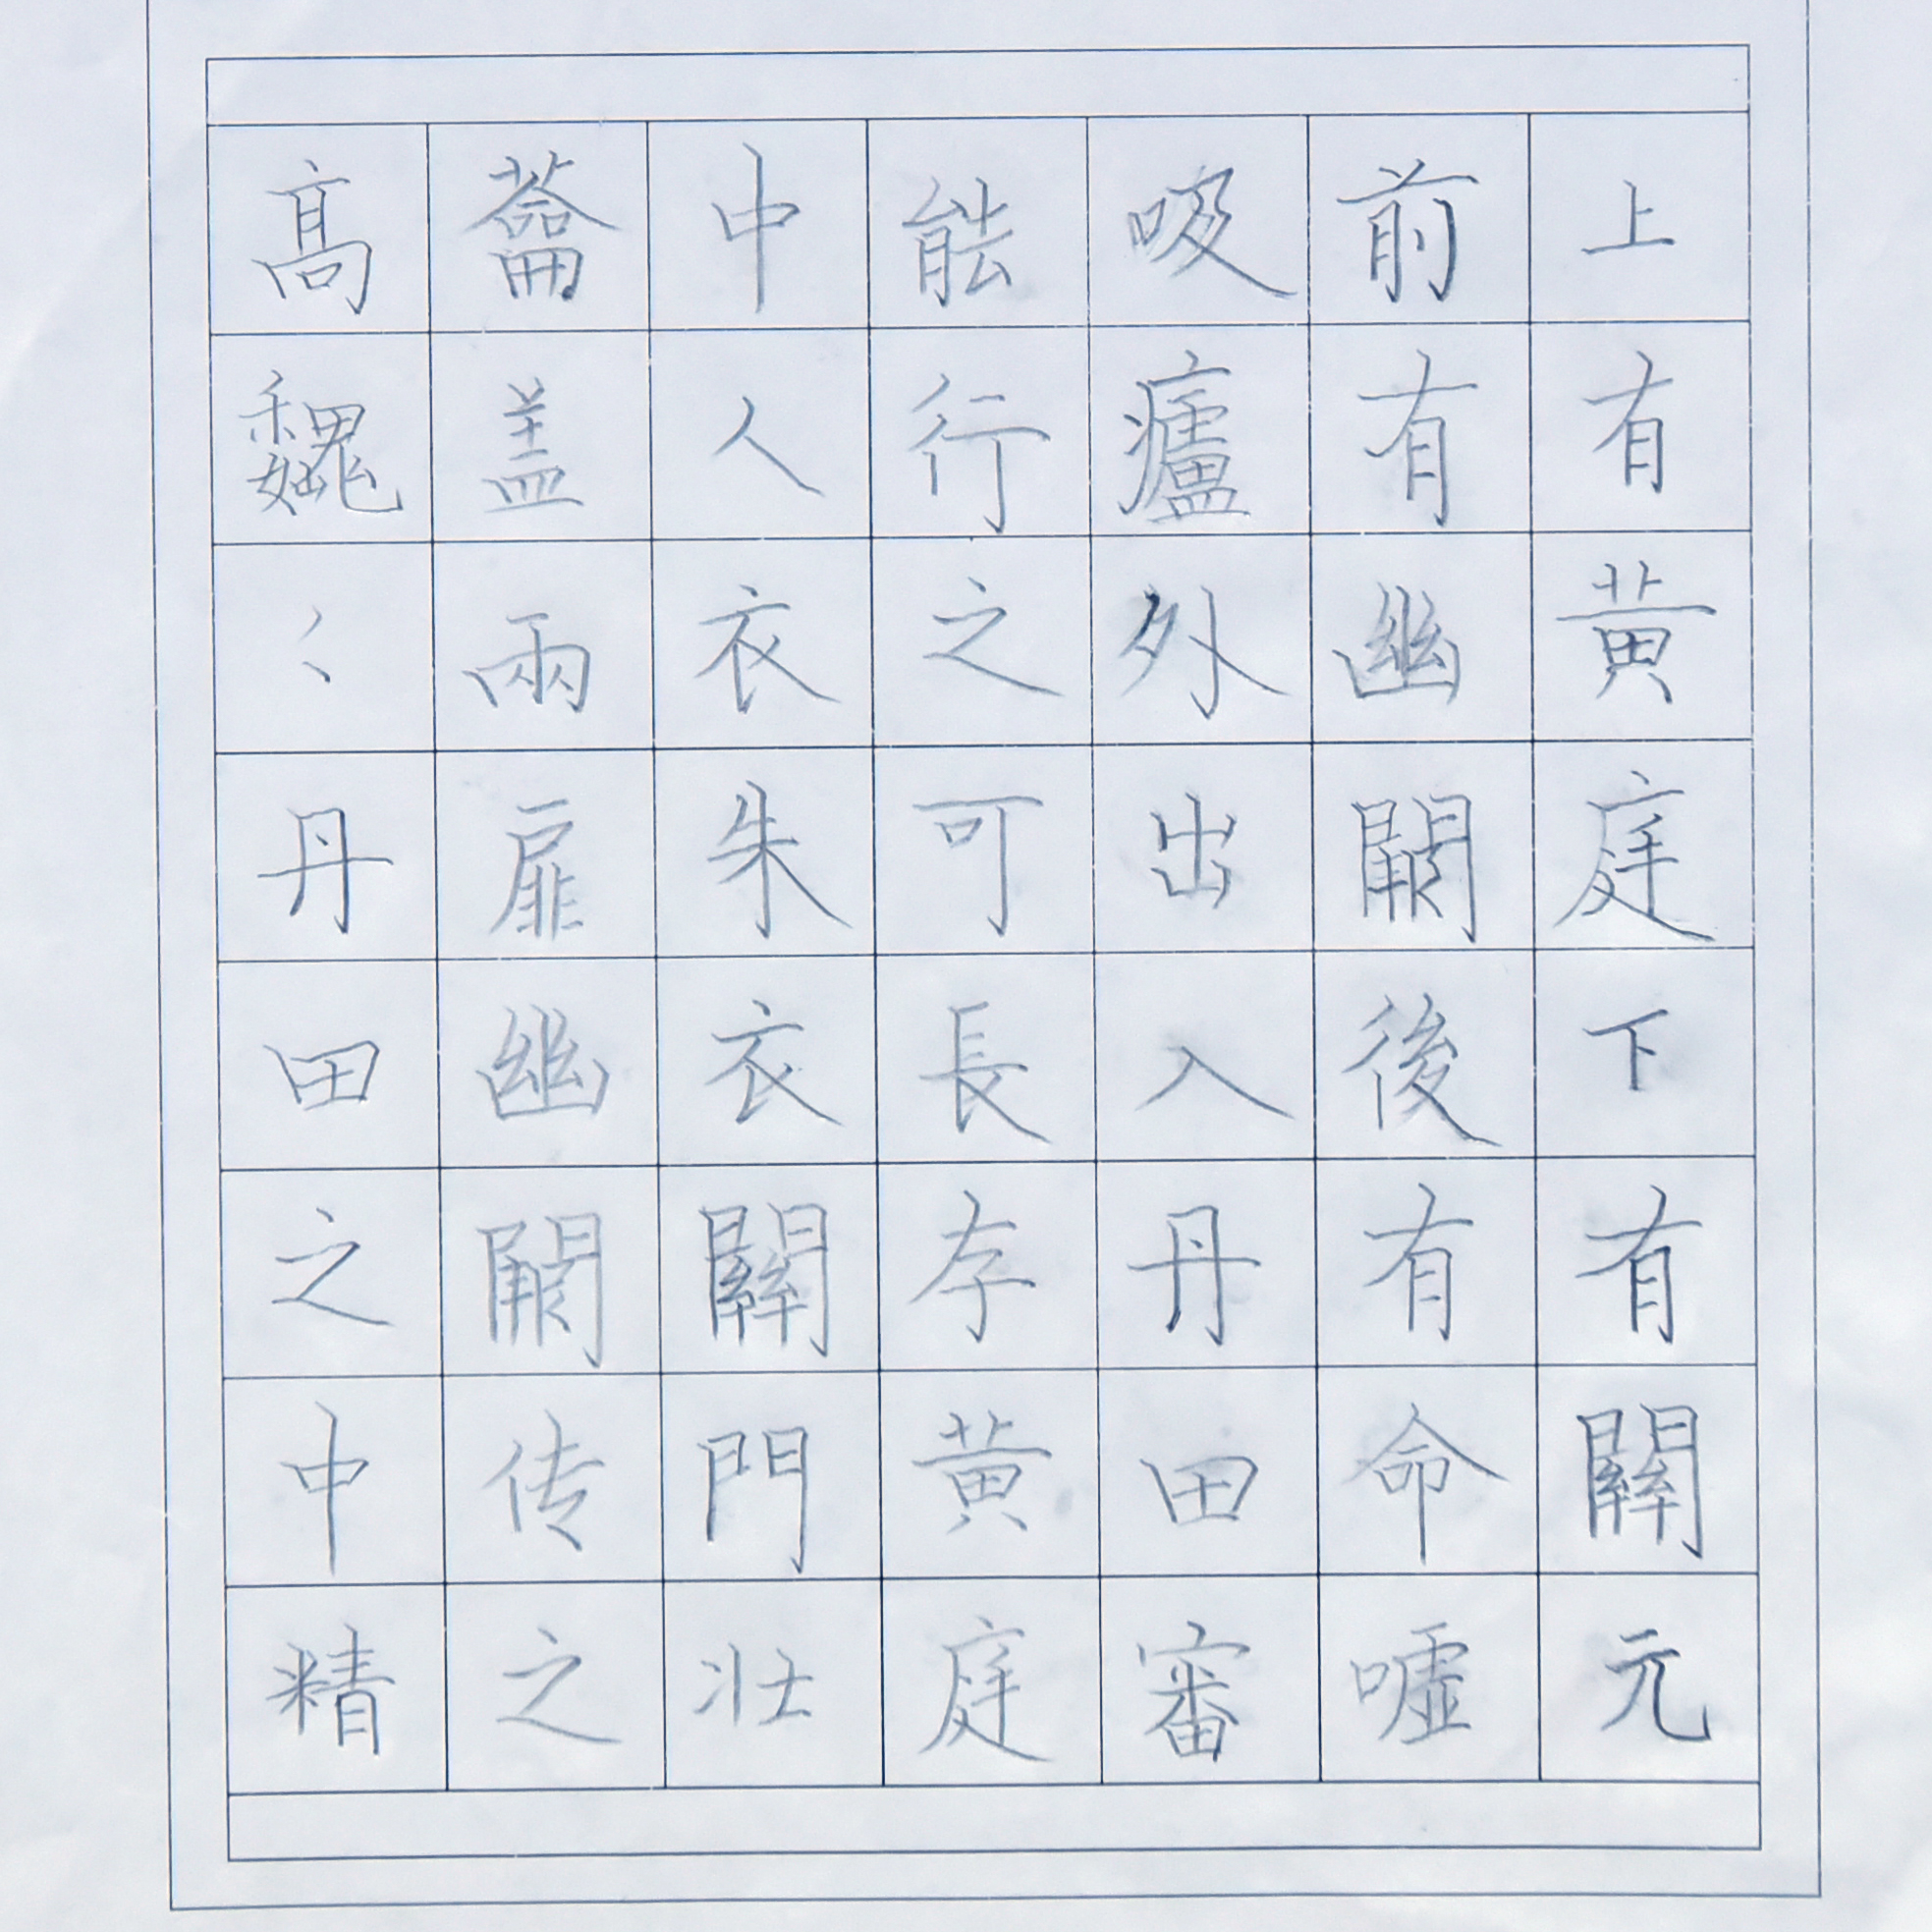 上有黄庭下有關元
前有幽闕後有命嘘
吸廬外出入丹田審
能行之可長存黄庭
中人衣朱衣關門壯
蘥盖兩扉幽闕传之
高魏〻丹田之中精